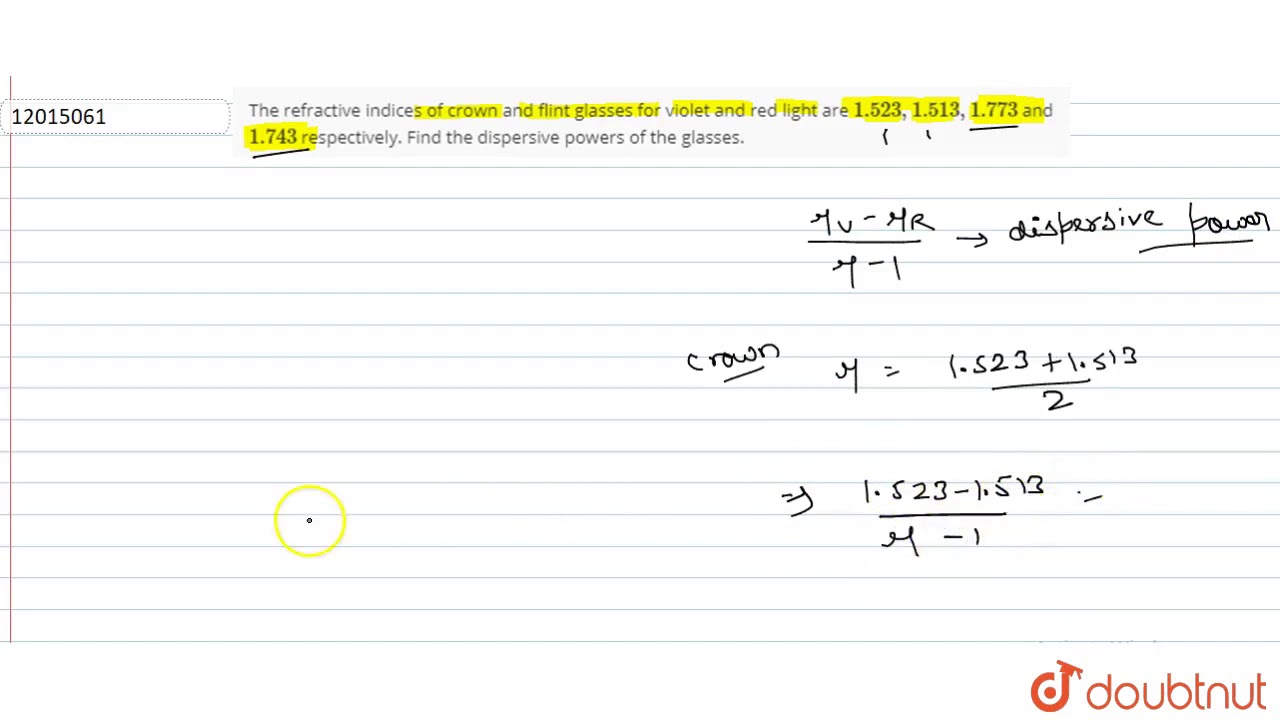 12015061
The refractive indices of crown and flint glasses for violet and red light are 1.523, 1.513, 1.773 and
1.743 respectively. Find the dispersive powers of the glasses.
μv - μR / μ - 1 → dispersive power
crown μ = 1.523 + 1.513 / 2
⇒ 1.523 - 1.513 / μ - 1 =
doubtnut